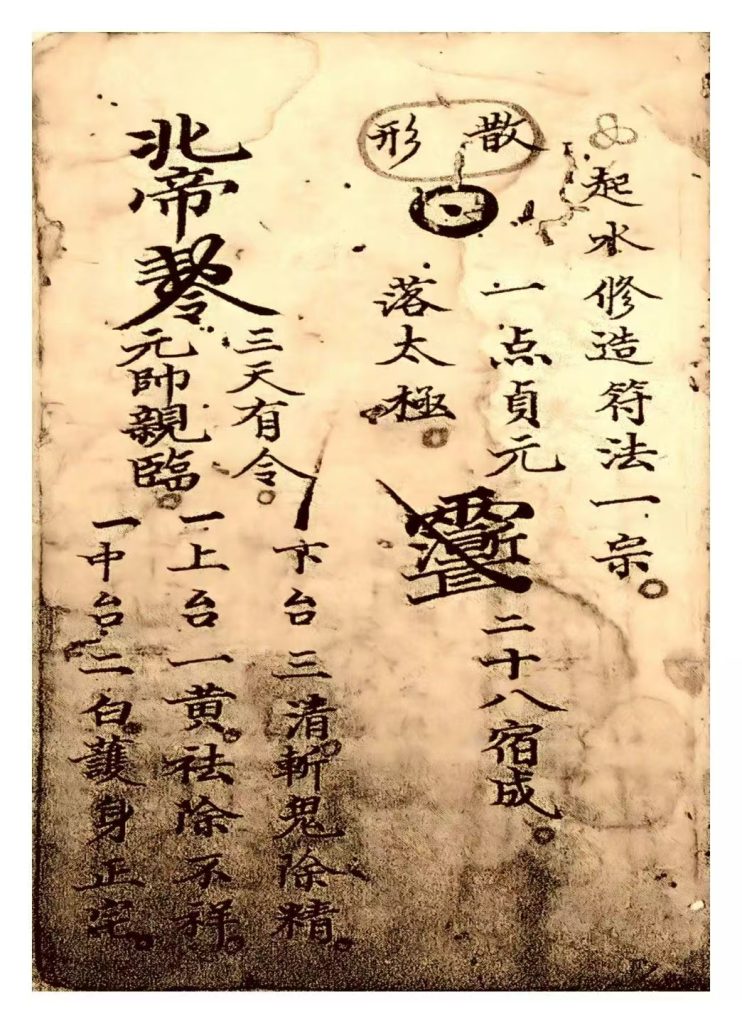 起水修造符法一宗
散形
一点貞元
落太極
二十八宿成
北帝
三天有令
元帥親臨
下台三清斬鬼除精
一上台一黄祛除不祥
一中台二白護身正宅